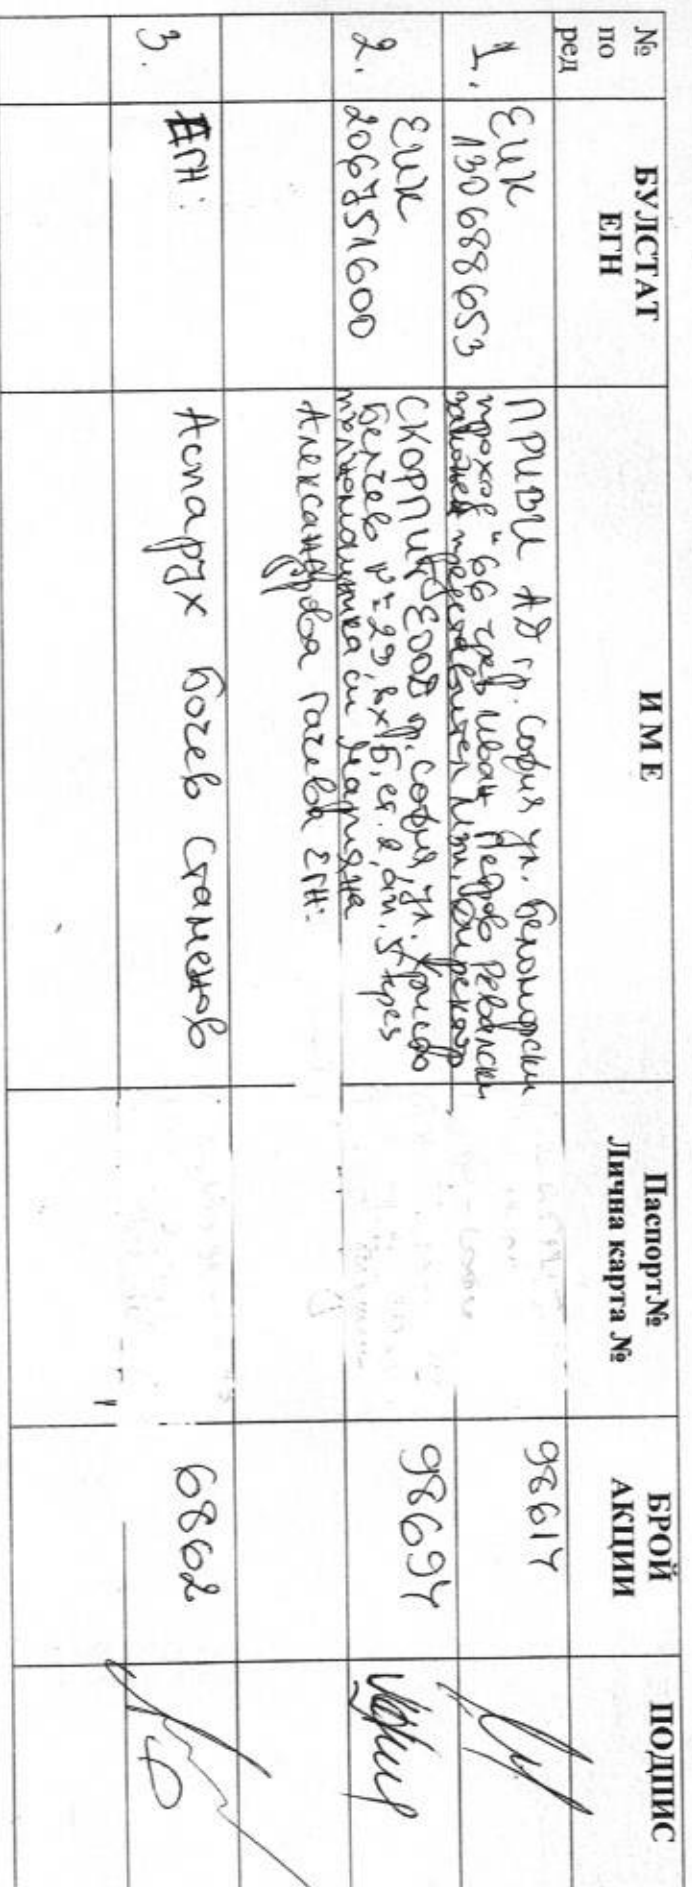 № по ред
БУЛСТАТ ЕГН
ИМЕ
Паспорт№ Лична карта №
БРОЙ АКЦИИ
ПОДПИС
1.
ЕИК
130688653
ПРИВИ АД гр. София ул. Беломорски
проход" 66 чрез Иван Петров Ревалски
98614
2.
ЕИК
206751600
СКОРПИ ЕООД гр. София, ул. Христо
Белчев № 29, вх. Б, ет. 2, ап. 5 чрез
пълномощника си Марияна
Александрова Гачева ЕГН:
98694
3.
ЕГН:
Аспарух Бочев Стаменов
6862